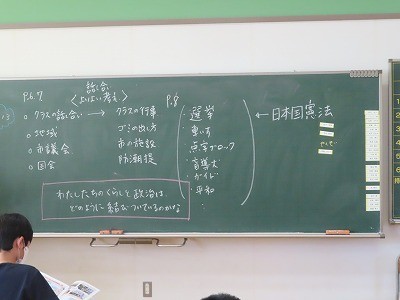 P.6.7
話し合い
<よりよい考え>
○クラスの話し合い → クラスの行事
○地域 ゴミの出し方
○市議会 市の施設
○国会 防潮堤
P.8
・選挙
・車いす
・点字ブロック
・盲導犬
・ガイド
・平和
← 日本国憲法
わたしたちのくらしと政治は、
どのように結びついているのかな